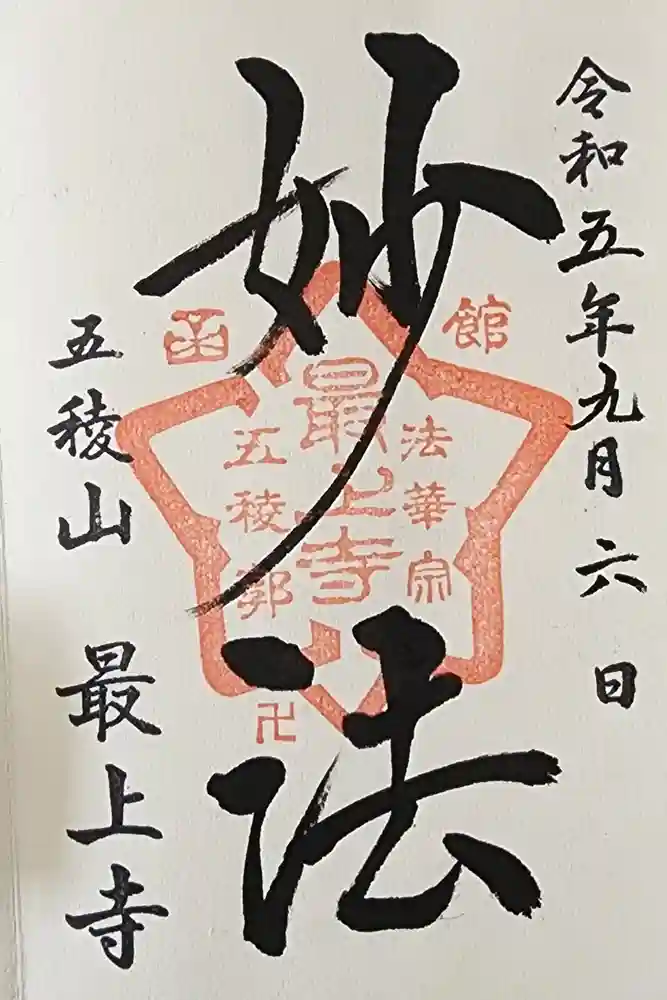 令和五年九月六日
妙法
五稜山 最上寺
函館
法華宗
最上寺
五稜郭
卍